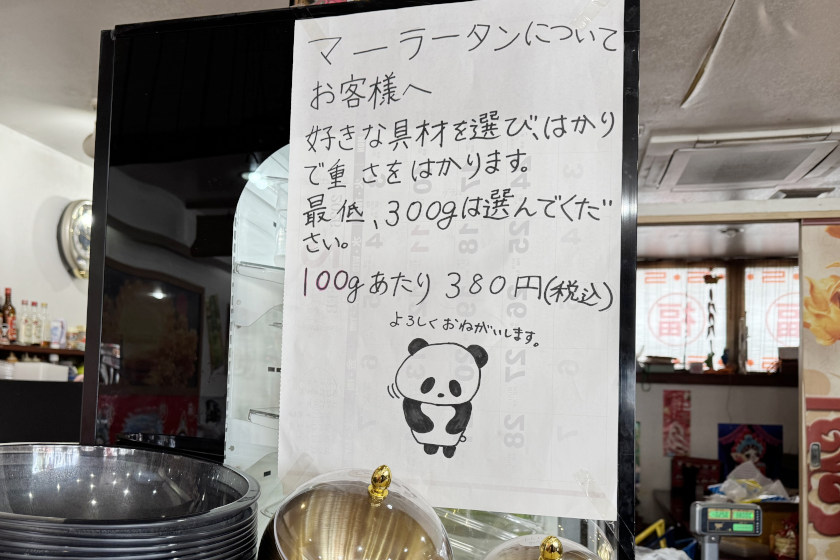 マーラータンについて
お客様へ
好きな具材を選び、はかり
で重さをはかります。
最低、300gは選んでくだ
さい。
100gあたり380円(税込)
よろしくおねがいします。
福
福